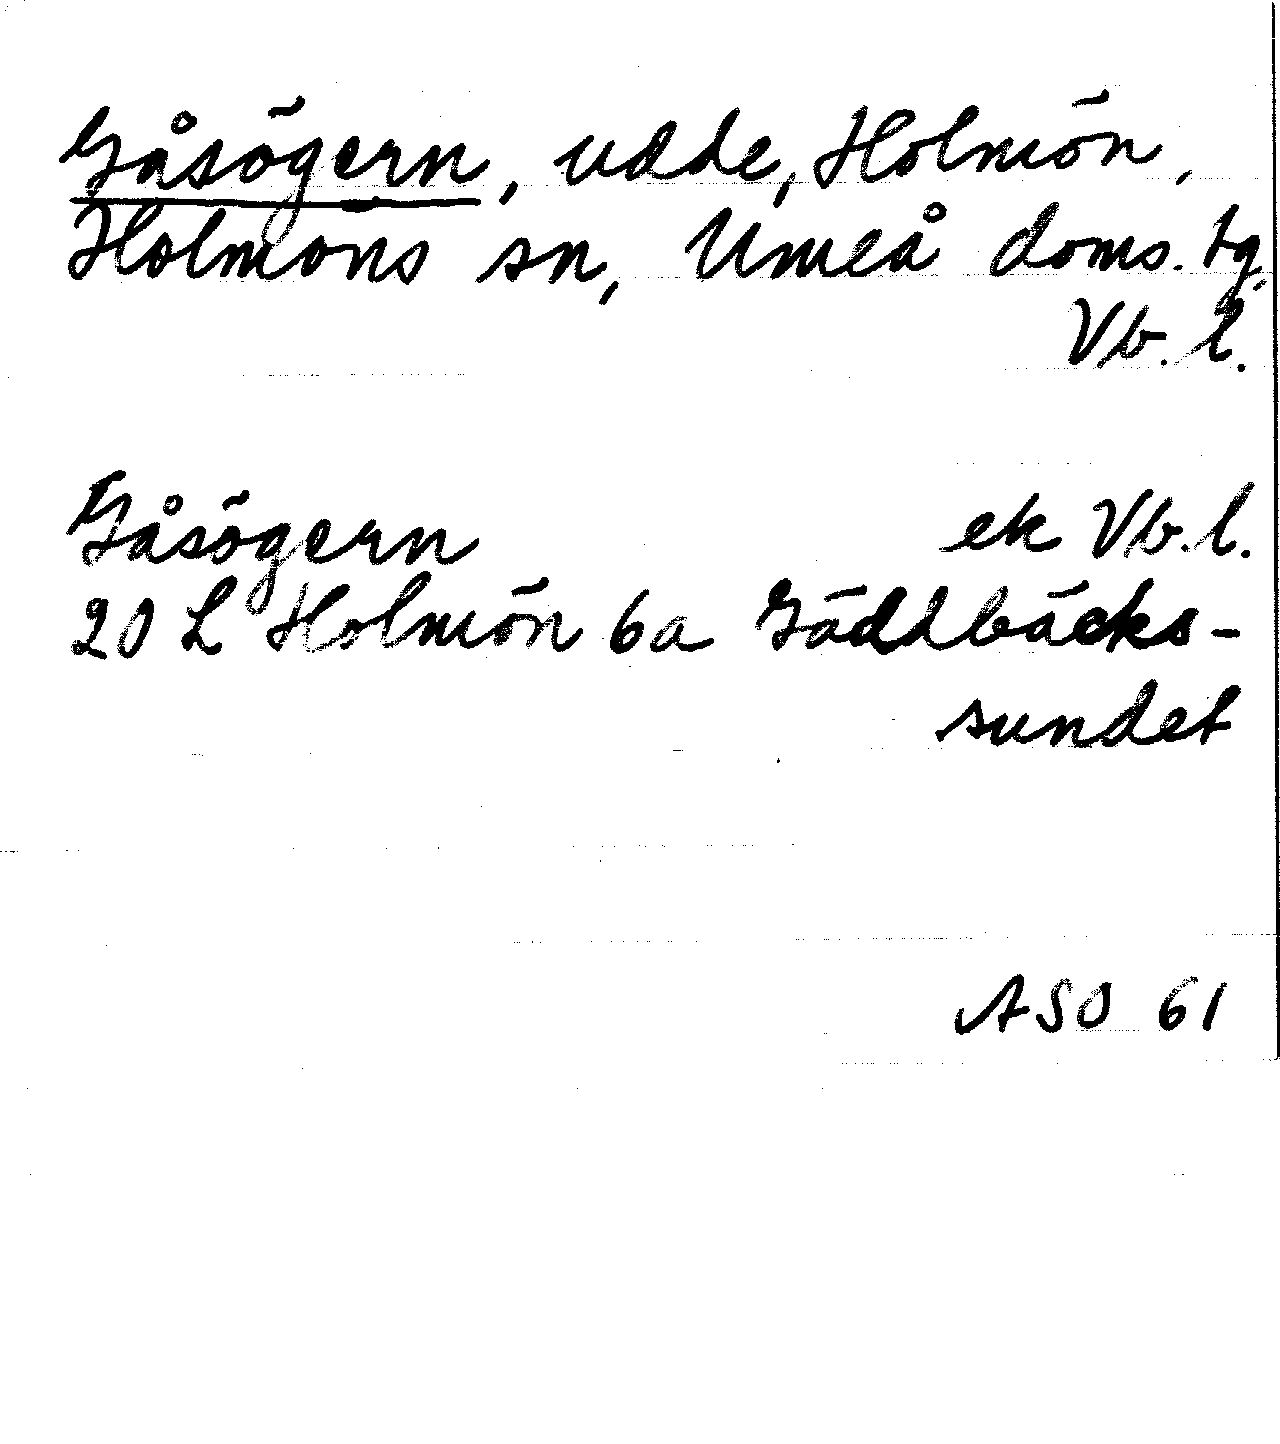 Gåsögern, udde, Holmön,
Holmöns sn, Umeå doms. tg,
Vb. l.
Gåsögern ek Vb. l.
20 L Holmön 6a Gäddbäcks-
sundet
ASO 61